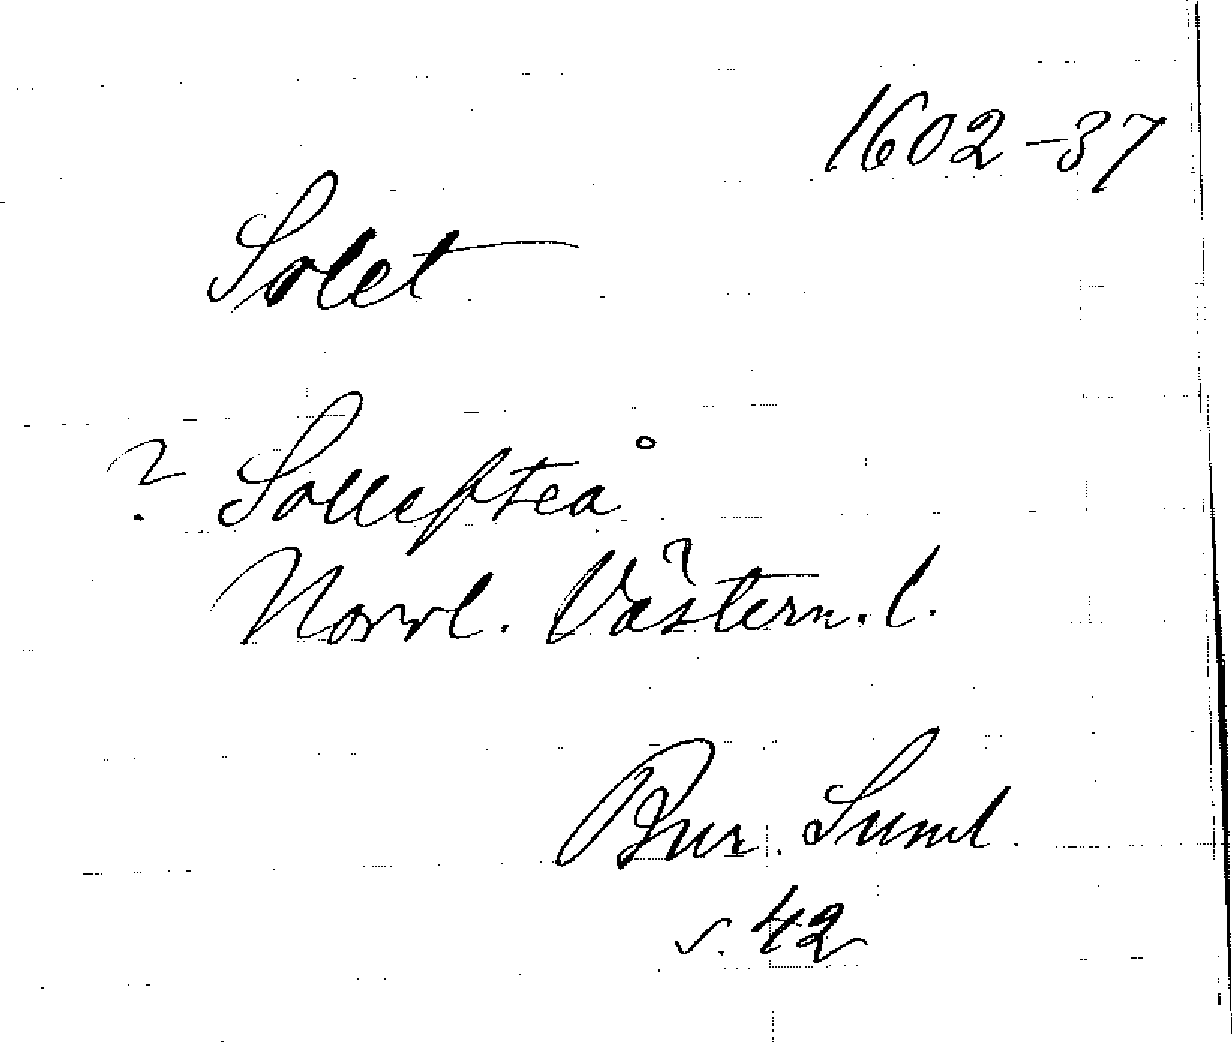 1602-37
Solet
? Sollefteå
Norrl. Västern. l.
Bur. Suml.
s. 42